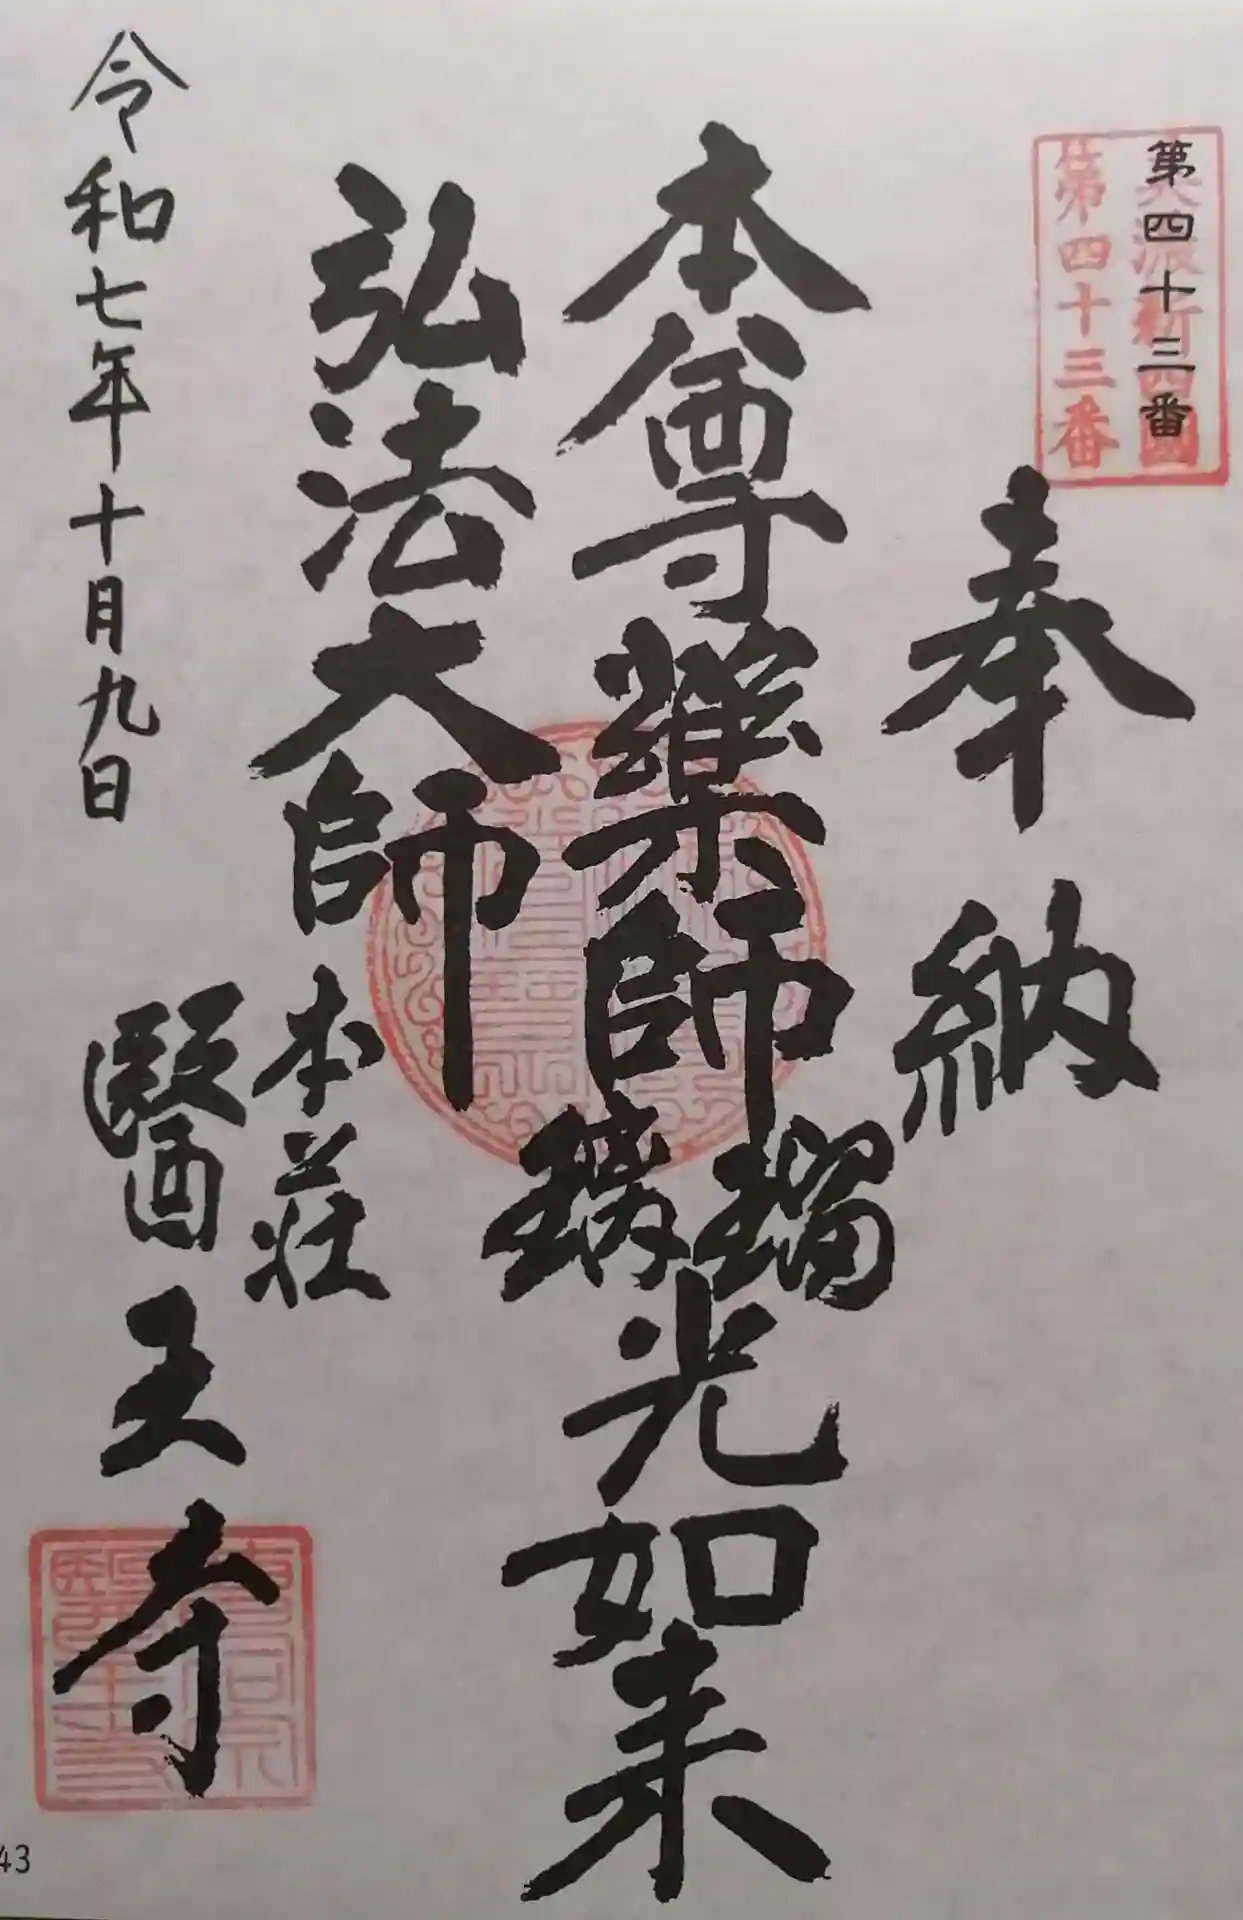 第四十三番
美濃新四国
第四十三番
奉納
本尊薬師瑠璃光如来
弘法大師
本荘
醫王寺
令和七年十月九日
43